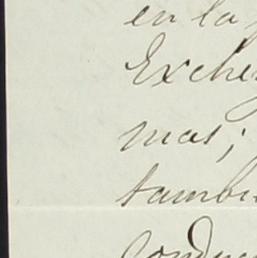 en la
Exche
mas;
tambi
conduc